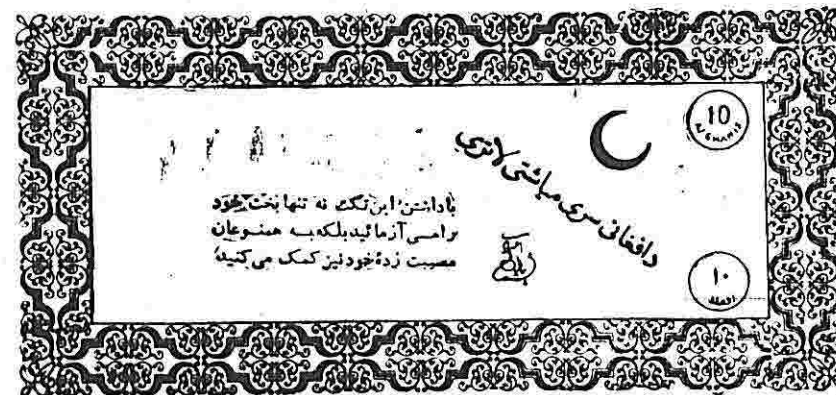 10
AFGHANIS
دافغانی سری میاشتی لاتری
با داشتن این تکت نه تنها بخت خود
را می آزمائید بلکه به همنوعان
مصیبت زدهٔ خود نیز کمک می کنید
۱۰